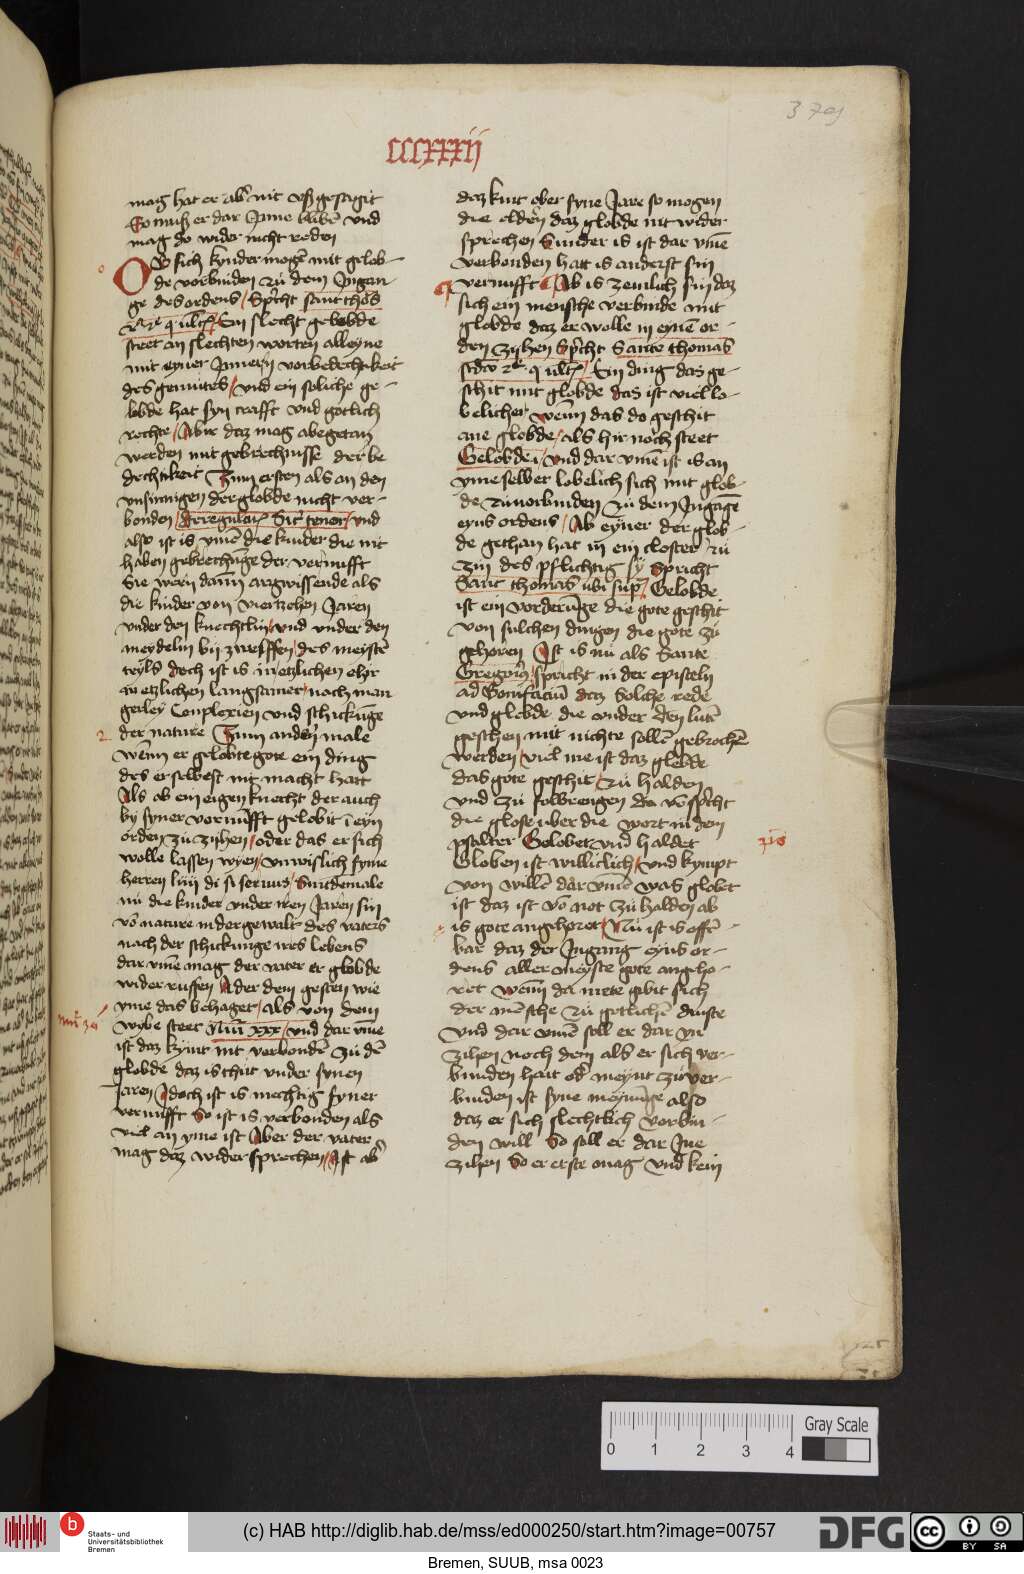 379
CCCXXXII
mag hat er ab nit vß gesagit
So muß er dar Inne bliben vnd
mag do wider nicht reden
Ob sich kynder mogē mit gelob-
de vorbinden zu dem Ingan-
ge des ordens / Spricht sant thōs
Ein slecht gelobde
steet an slechten worten alleyne
mit eyner Inneren vorbedechtikeit
des gemutes / vnd ein soliche ge-
lobde hat syn crafft vnd gotlich
rechte / Aber daz mag abegetan
werden mit gebrechnisse der be
dechtikeit Zum ersten als an den
vnsinnigen der globde nicht ver-
bonden / de regular Sic tener / vnd
also ist is vmē die kinder die nit
haben gebrechūge der vernufft
Sie wern dann argwissende als
die kinder von viertzehen Jaren
vnder den knechtlin / vnd vnder den
meydelin bij zwelffen / des meystē
teyls doch ist is in etzlichen ehir
in etzlichen langsamer / nach man
gerley Conplexien vnd schickūge
2 der nature Zum andern male
wenn er gelobte gote ein ding
des er selbest nit macht hatt
Als ob ein eigen knecht der auch
by syner vornūfft gelobit ī eyn
orden zu zijhen / oder das er sich
wolle lassen wyen / vnwislich syme
herren liiij di si seruus / Sint demale
nu die kinder vnder iren Jaren sin
vō nature in der gewalt des vaters
nach der schickunge irs lebens
dar vme mag der vater er globde
wider ruffen Ader dem gesten wie
yme das behaget / als von dem
wybe steet Nūi xxx / vnd dar vme
ist daz kynt nit verbondē zu dē
globde daz is thut vnder synen
Jaren Idoch ist is mechtig syner
vernufft So ist is verbonden als
viel an yme ist Aber der vater
mag daz wider sprechen / Ist ab
daz kint ober syne Jare so mogen
die eldern daz globde nit wider
sprechen Sunder is ist dar vmē
verbonden hatt is anderst sin
vernufft Ab is zemlich sin daz
sich ein mensche verbinde mit
globde daz er wolle in eynē or-
den zijhen Spricht Sante thomas
Ein ding das ge-
schit mit globde das ist viel lo-
belicher wenn das do geschit
ane globde / als hir noch steet
Gelobde i / vnd dar vmē ist is an
yme selber lobelich sich mit glob-
de zu vorbinden zu dem Ingāge
eyns ordens / Ab eyner der glob-
de gethan hat in ein closter zu
zin des pflichtig sy Spricht
Sant thomas ubi sup / Gelobde
ist ein vorderūge die gote geschit
von sulchen dingen die gote zu
gehoren Ist is nu als Sante
Gregorius spricht in der episteln
ad Bonifaciū daz solche rede
vnd globde die onder den lutē
geschen mit nichte sollē gebrochē
werden / viel me ist daz glebde
das gote geschit / zu halden
vnd zu folbrengen do vō spricht
die glose uber die wort in dem
psalter Gelobet vnd haldet
Globen ist williclich / vnd kympt
von willē dar vmē was globet
ist daz ist vō not zu halden ab
is gote angehoret / Nu ist is offī-
bar daz der Ingang eyns or-
dens aller meyste gote angeho-
ret wenn da mete gibit sich
der mēsche zu gotlichē dinste
vnd dar vmē soll er dar yn
zihen noch dem als er sich ver-
bunden hait od meynt zu ver-
binden ist syne meynūge also
daz er sich slechtlich vorbin-
den will So soll er dar Ine
zihen So er erste mag vnd kein
0 1 2 3 4
Gray Scale
Staats- und
Universitätsbibliothek
Bremen
(c) HAB http://diglib.hab.de/mss/ed000250/start.htm?image=00757
DFG
cc BY SA
Bremen, SUUB, msa 0023